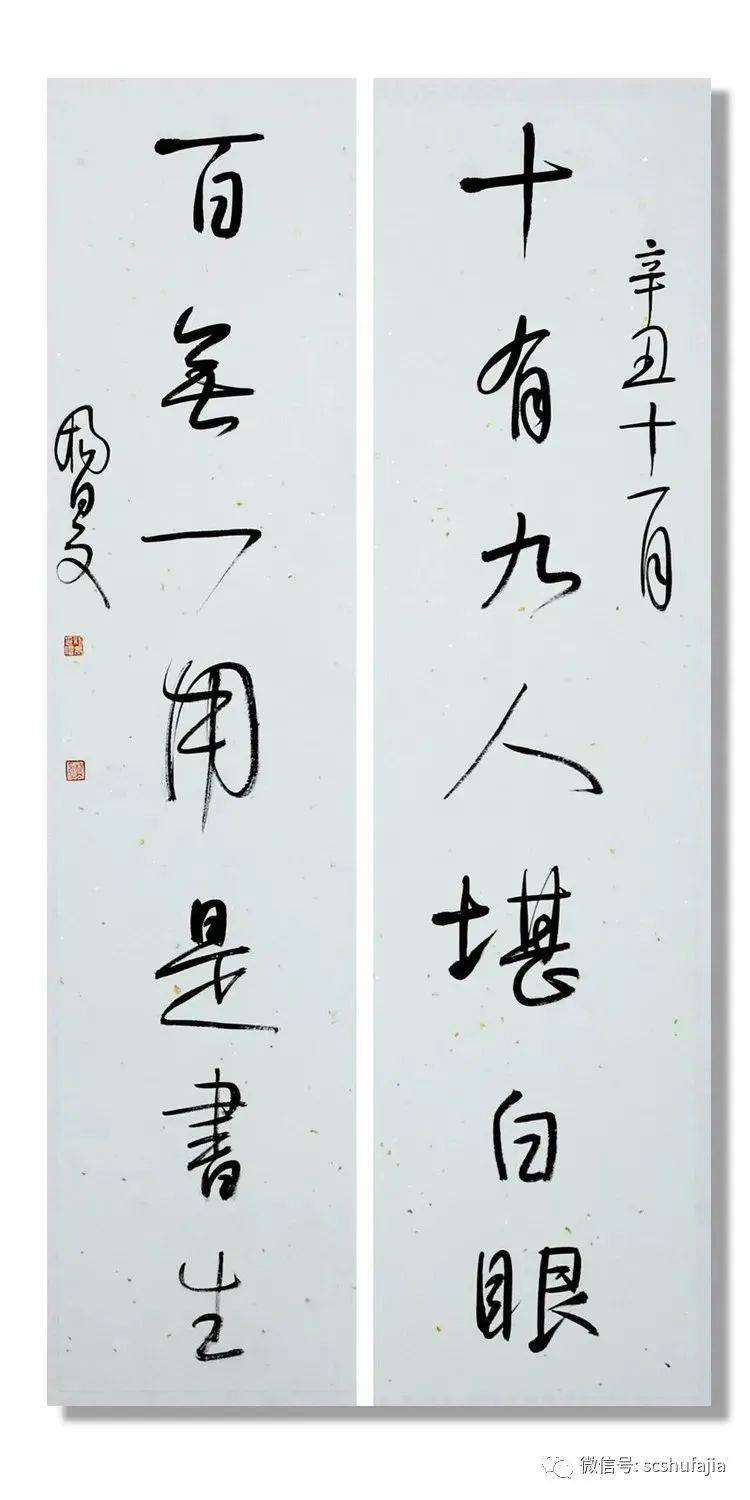 辛丑十一月
十有九人堪白眼
百無一用是書生
微信号: scshufajia